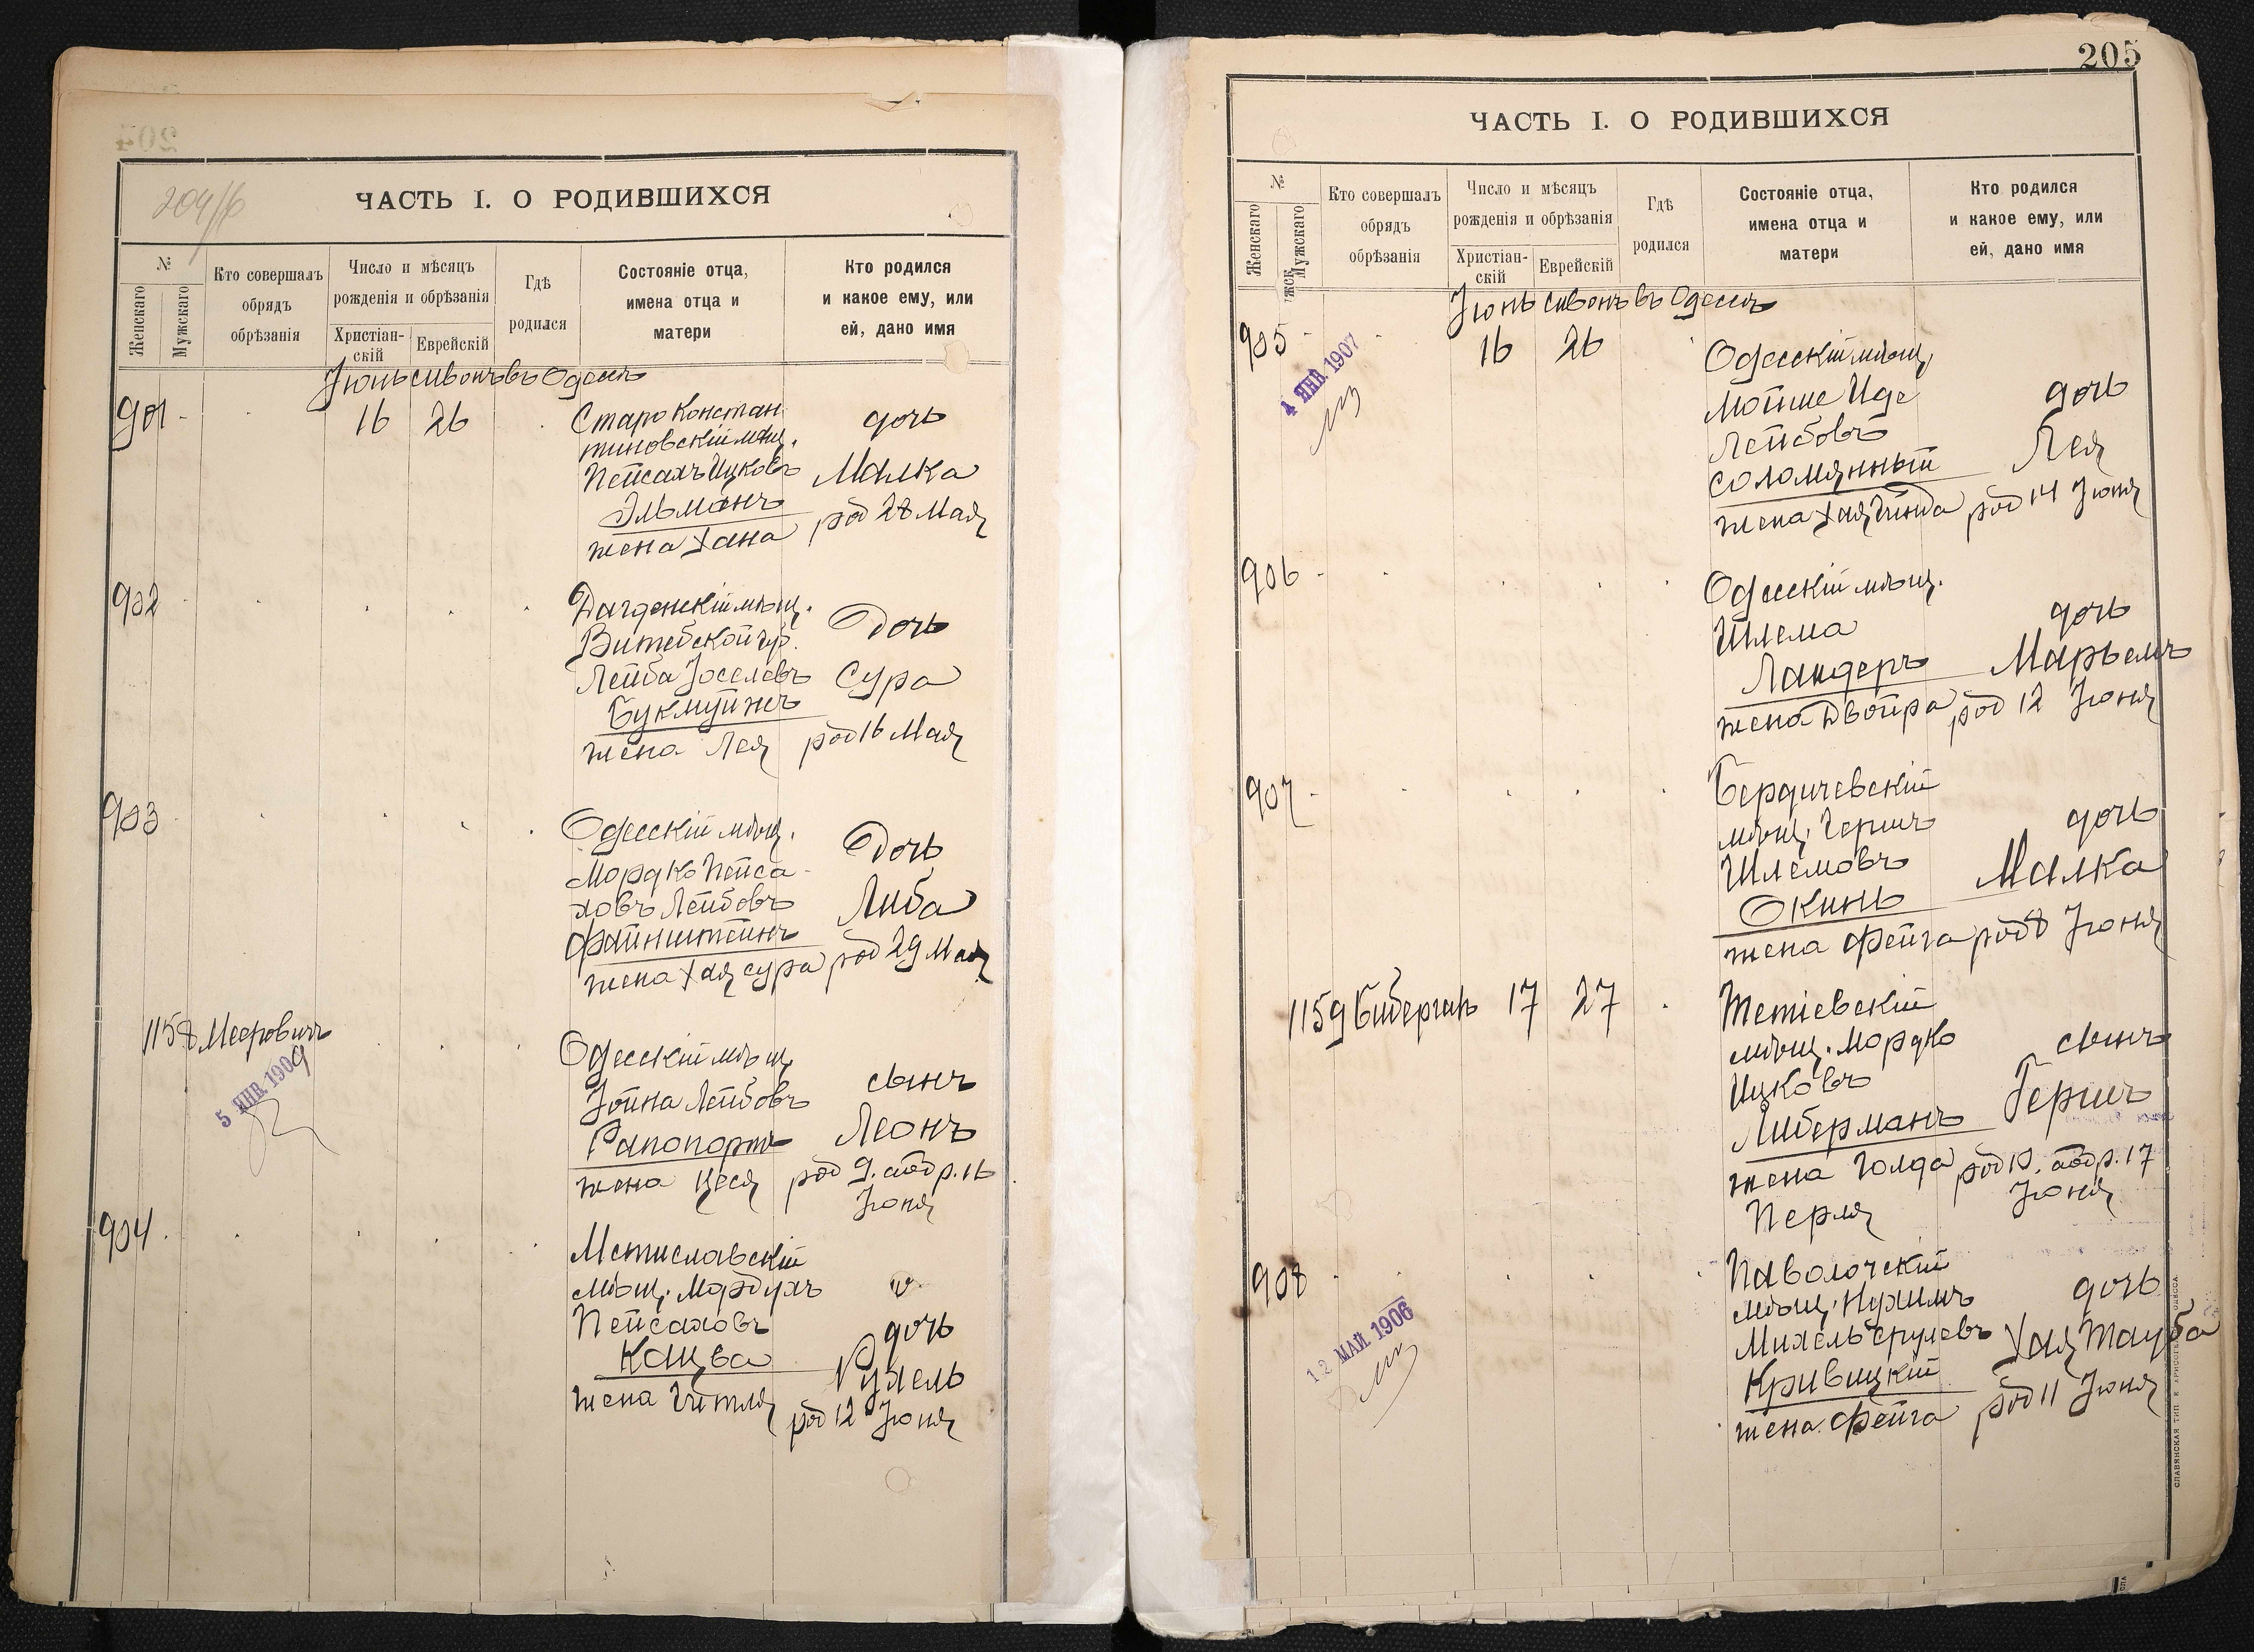 204/б
ЧАСТЬ I. О РОДИВШИХСЯ
№
Женскаго
Мужскаго
Кто совершалъ
обрядъ
обрѣзанія
Число и мѣсяцъ
рожденія и обрѣзанія
Христіан-
скій
Еврейскій
Гдѣ
родился
Состояніе отца,
имена отца и
матери
Кто родился
и какое ему, или
ей, дано имя
Іюнь сивонъ въ Одессѣ
901
16
26
Старо Констан
тиновскій мѣщ.
Пейсахъ Ицковъ
Эльманъ
жена Хана
дочь
Малка
род 28 Мая
902
Дагденскій мѣщ.
Витебской губ.
Лейба Іоселевъ
жена Лея
Дочь
Сура
род 16 Мая
903
Одесскій мѣщ.
Мордко Пейса-
ховъ Лейбовъ
Файнштейнъ
жена Хая Сура
Дочь
Либа
род 29 Мая
1158 Мееровичъ
5 ЯНВ. 1909
Одесскій мѣщ
Іойна Лейбовъ
Рапопортъ
жена Цеся
сынъ
Леонъ
род 9. обр. 16
Іюня
904
Мстиславскій
мѣщ. Мордухъ
Пейсаховъ
Кацва
жена Гитля
дочь
Рухель
род 12 Іюня
205
ЧАСТЬ I. О РОДИВШИХСЯ
№
Женскаго
Мужскаго
Кто совершалъ
обрядъ
обрѣзанія
Число и мѣсяцъ
рожденія и обрѣзанія
Христіан-
скій
Еврейскій
Гдѣ
родился
Состояніе отца,
имена отца и
матери
Кто родился
и какое ему, или
ей, дано имя
Іюнь сивонъ въ Одессѣ
905
4 ЯНВ. 1907
16
26
Одесскій мѣщ,
Мойше Иде
Лейбовъ
Соломянный
жена Хая Гинда
дочь
Лея
род 14 Іюня
906
Одесскій мѣщ.
Шлема
Ландеръ
жена Двойра
дочь
Марьемъ
род 12 Іюня
907
Бердичевскій
мѣщ. Гершъ
Шлемовъ
Окинь
жена Фейга
дочь
Малка
род 8 Іюня
1159
17
27
Тетіевскій
мѣщ. Мордко
Ицковъ
Либерманъ
жена Голда
Перля
сынъ
Гершъ
род 10. обр. 17
Іюня
908
12 МАЙ 1906
Паволочскій
мѣщ. Нухимъ
Михель Срулевъ
Кривицкій
жена Фейга
дочь
Хая Тауба
род 11 Іюня